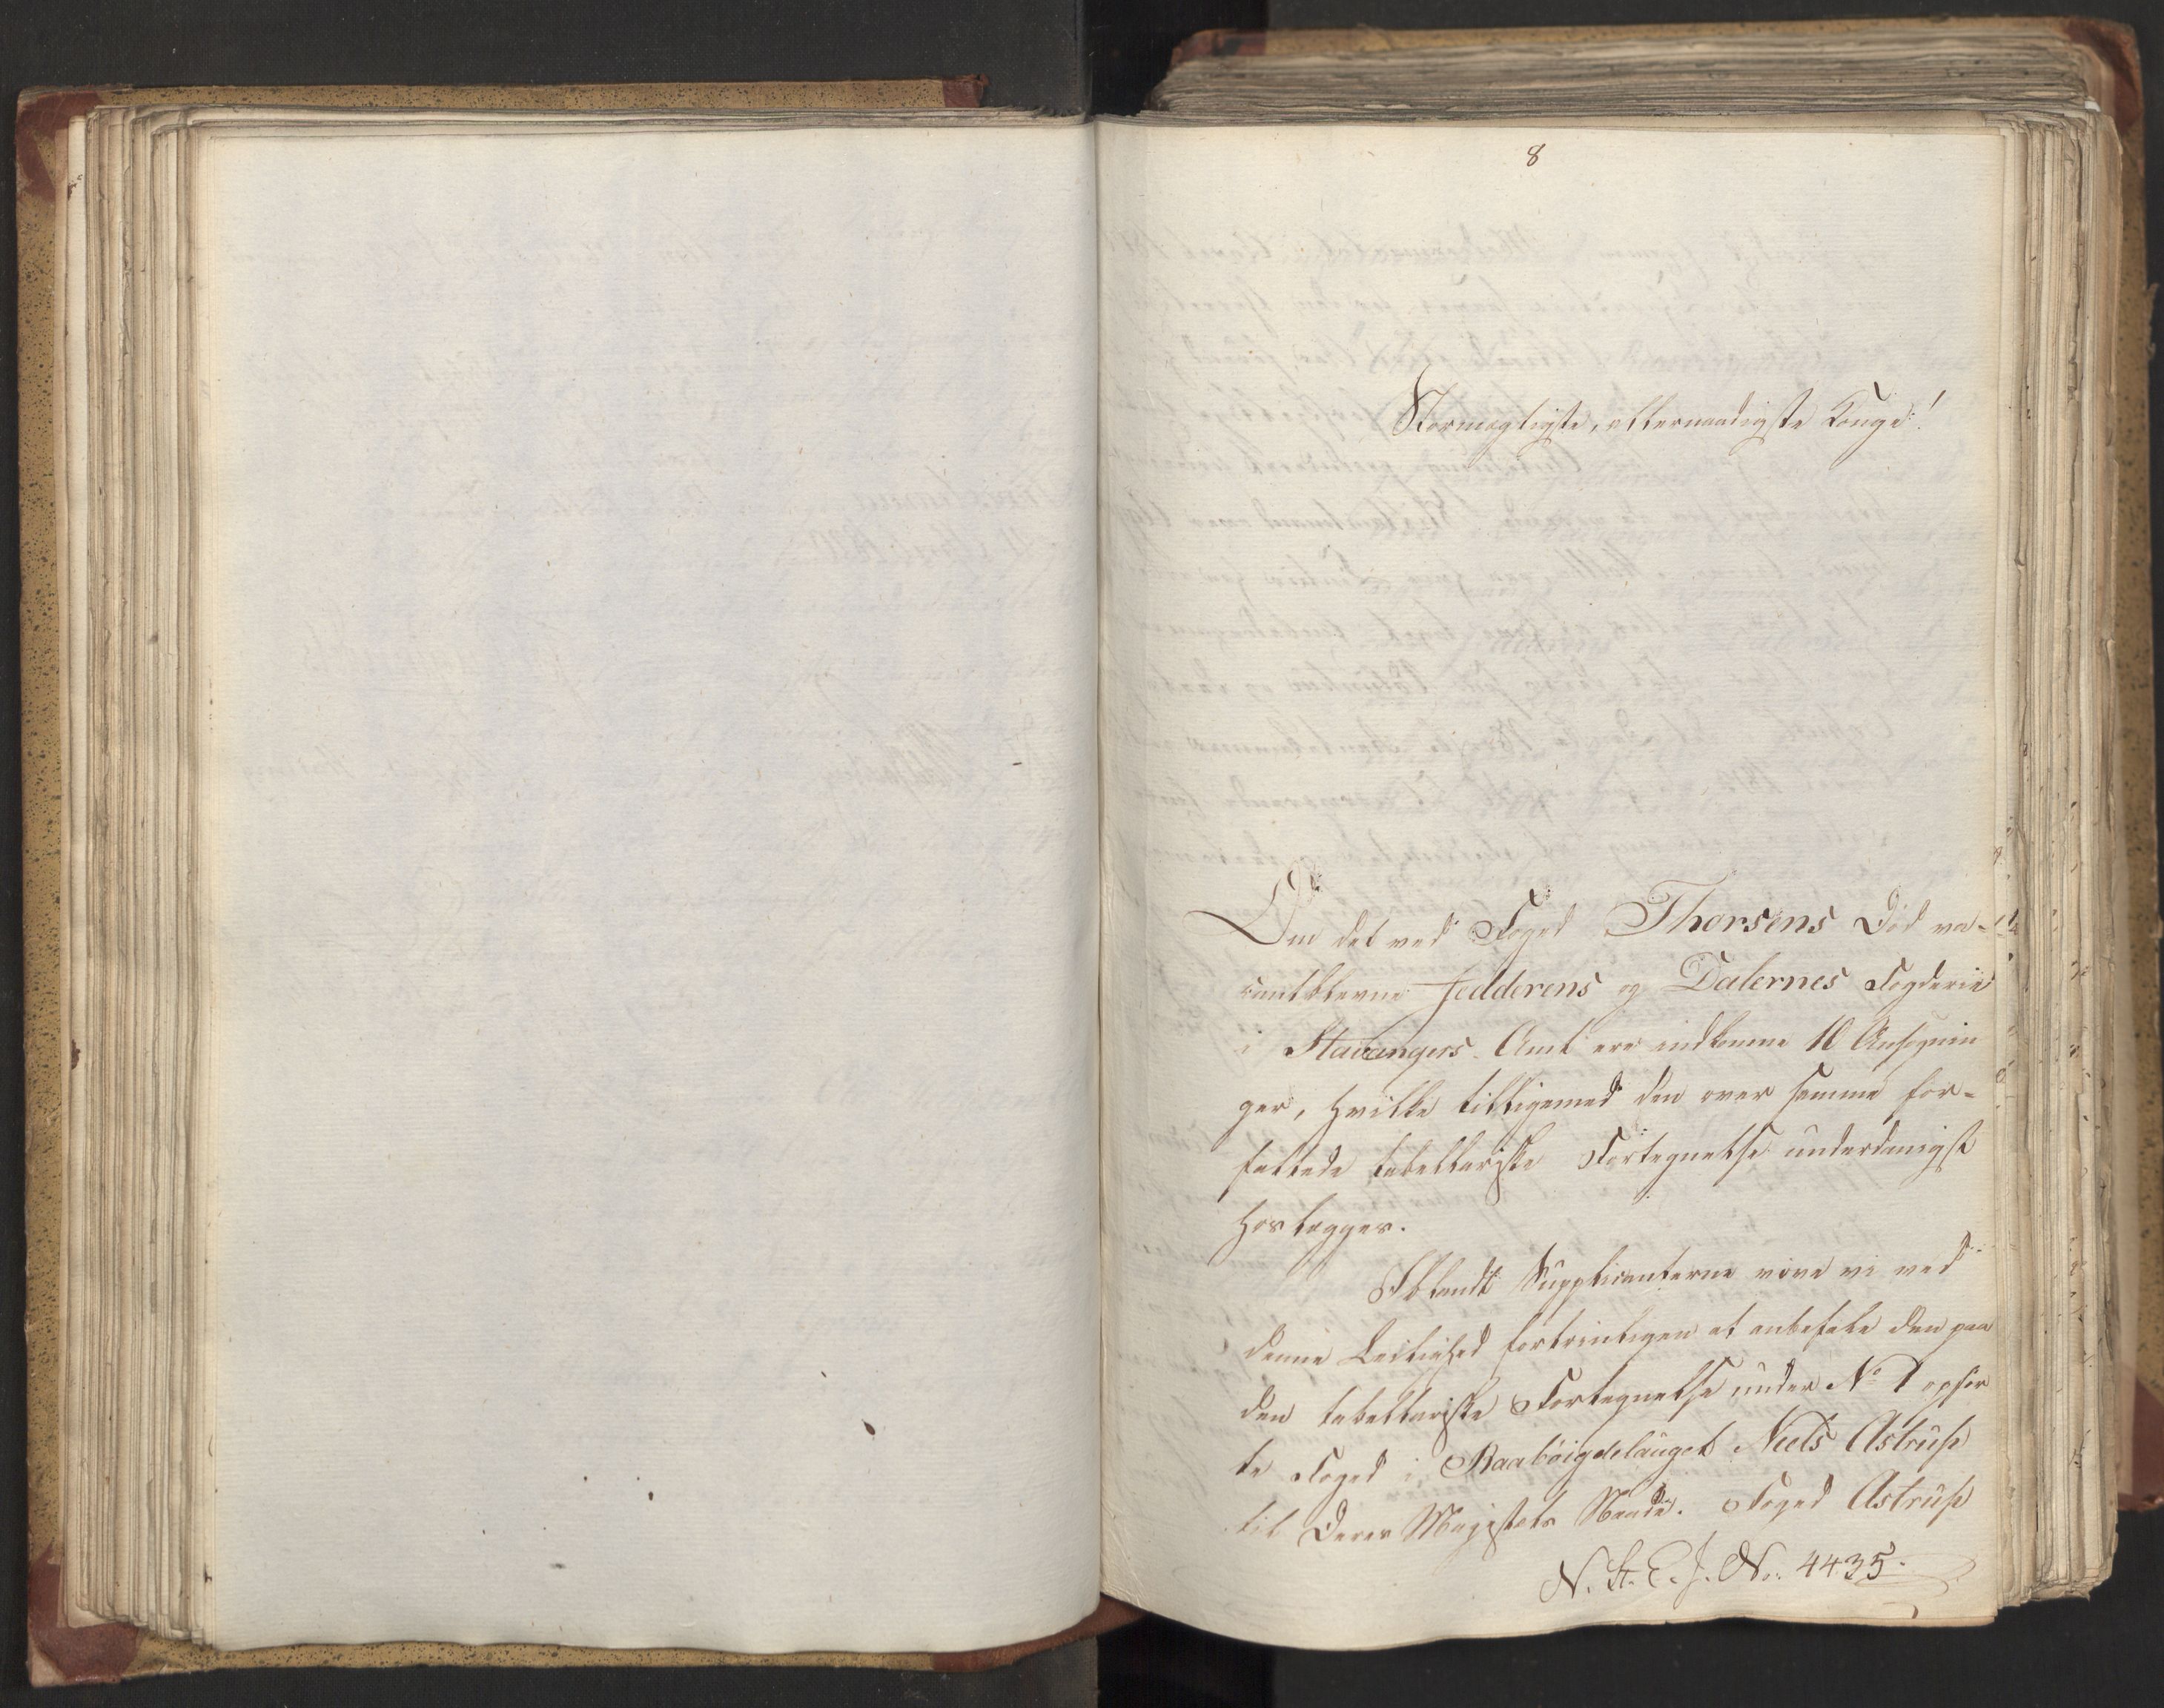 8
Stormægtigste, allernaadigste Konge!
Om det ved Foged Thorsens Død va-
cantblevne Jedderens og Dalernes Fogderie
i Stavangers Amt ere indkomne 10 Ansøgnin
ger, hvilke tilligemed den over samme for-
fattede tabellariske Fortegnelse underdanigst
hoslægges.
Iblandt Supplicanterne vove vi ved
denne Leilighed fortrinligen at anbefale den paa
den tabellariske Fortegnelse under No 1 opfør
te Foged i Raabøigdelauget Niels Astrup
til Deres Majestæts Naade. Foged Astrup
N. St. E. J. No. 4435.